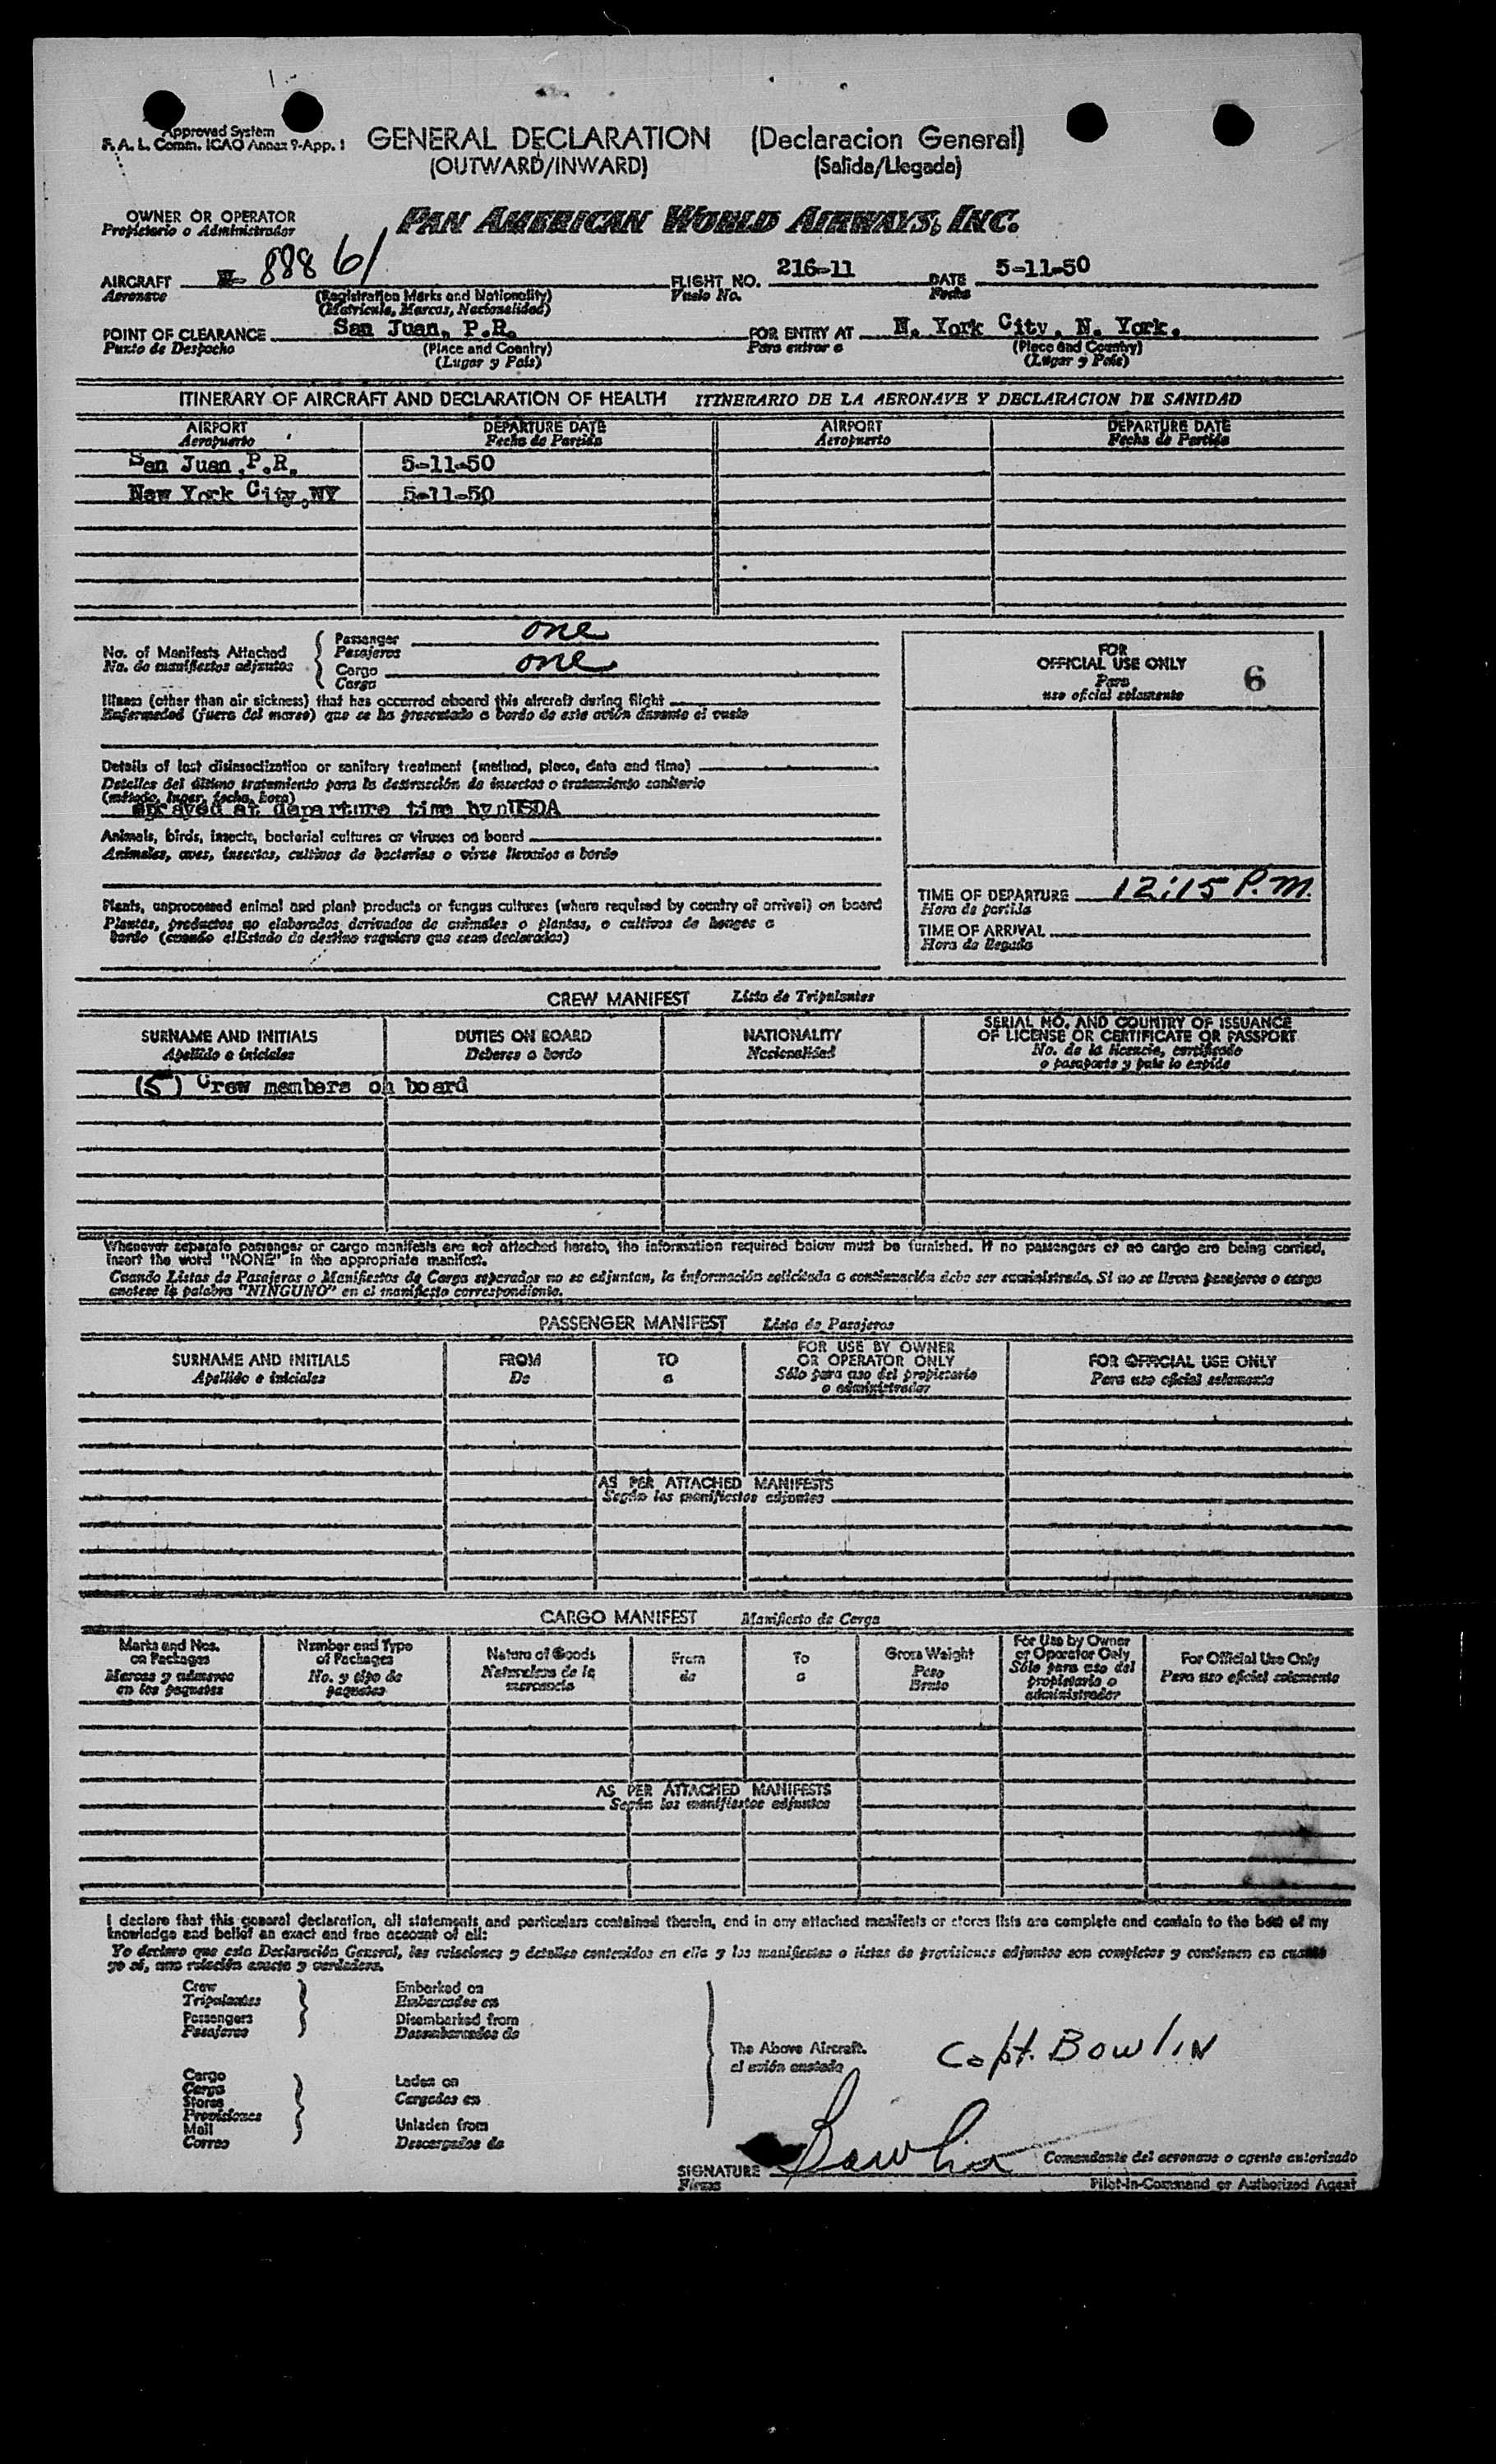 Approved System
F. A. L. Comm. ICAO Annex 9-App. 1
GENERAL DECLARATION (Declaracion General)
(OUTWARD/INWARD) (Salida/Llegada)
OWNER OR OPERATOR
Propietario o Administrador
PAN AMERICAN WORLD AIRWAYS, INC.
AIRCRAFT N- 88861 FLIGHT NO. 216-11 DATE 5-11-50
Aeronave (Registration Marks and Nationality) Vuelo No. Fecha
(Matricula, Marcas, Nacionalidad)
POINT OF CLEARANCE San Juan, P.R. FOR ENTRY AT N. York City, N. York.
Punto de Despacho (Place and Country) Para entrar a (Place and Country)
(Lugar y Pais) (Lugar y Pais)
ITINERARY OF AIRCRAFT AND DECLARATION OF HEALTH ITINERARIO DE LA AERONAVE Y DECLARACION DE SANIDAD
AIRPORT DEPARTURE DATE AIRPORT DEPARTURE DATE
Aeropuerto Fecha de Partida Aeropuerto Fecha de Partida
San Juan,P.R. 5-11-50
New York City,NY 5-11-50
No. of Manifests Attached
No. de manifiestos adjuntos
Passenger one
Pasajeros
Cargo one
Carga
Illness (other than air sickness) that has occurred aboard this aircraft during flight
Enfermedad (fuera del mareo) que se ha presentado a bordo de este avión durante el vuelo
Details of last disinsectization or sanitary treatment (method, place, date and time)
Detalles del último tratamiento para la destrucción de insectos o tratamiento sanitario
(método, lugar, fecha, hora)
sprayed at departure time by USDA
Animals, birds, insects, bacterial cultures or viruses on board
Animales, aves, insectos, cultivos de bacterias o virus llevados a bordo
Plants, unprocessed animal and plant products or fungus cultures (where required by country of arrival) on board
Plantas, productos no elaborados derivados de animales o plantas, o cultivos de hongos a
bordo (cuando el Estado de destino requiera que sean declarados)
FOR
OFFICIAL USE ONLY
Para
uso oficial solamente
6
TIME OF DEPARTURE 12:15 P.M.
Hora de partida
TIME OF ARRIVAL
Hora de llegada
CREW MANIFEST Lista de Tripulantes
SURNAME AND INITIALS DUTIES ON BOARD NATIONALITY SERIAL NO. AND COUNTRY OF ISSUANCE
OF LICENSE OR CERTIFICATE OR PASSPORT
Apellido e iniciales Deberes a bordo Nacionalidad No. de la licencia, certificado
o pasaporte y pais lo expide
(5) Crew members on board
Whenever separate passenger or cargo manifests are not attached hereto, the information required below must be furnished. If no passengers or no cargo are being carried,
insert the word "NONE" in the appropriate manifest.
Cuando Listas de Pasajeros o Manifiestos de Carga separados no se adjuntan, la información solicitada a continuación debe ser suministrada. Si no se lleven pasajeros o carga
anotese la palabra "NINGUNO" en el manifiesto correspondiente.
PASSENGER MANIFEST Lista de Pasajeros
SURNAME AND INITIALS FROM TO FOR USE BY OWNER
OR OPERATOR ONLY FOR OFFICIAL USE ONLY
Apellido e iniciales De a Sólo para uso del propietario
o administrador Para uso oficial solamente
AS PER ATTACHED MANIFESTS
Según los manifiestos adjuntos
CARGO MANIFEST Manifiesto de Carga
Marks and Nos.
on Packages
Marcas y números
en los paquetes
Number and Type
of Packages
No. y tipo de
paquetes
Nature of Goods
Naturaleza de la
mercancía
From
de
To
a
Gross Weight
Peso
Bruto
For Use by Owner
or Operator Only
Sólo para uso del
propietario o
administrador
For Official Use Only
Para uso oficial solamente
AS PER ATTACHED MANIFESTS
Según los manifiestos adjuntos
I declare that this general declaration, all statements and particulars contained therein, and in any attached manifests or stores lists are complete and contain to the best of my
knowledge and belief an exact and true account of all:
Yo declaro que esta Declaración General, las relaciones y detalles contenidos en ella y los manifiestos o listas de provisiones adjuntos son completos y contienen en cuanto
yo sé, una relación exacta y verdadera.
Crew
Tripulantes
Passengers
Pasajeros
Embarked on
Embarcados en
Disembarked from
Desembarcados de
Cargo
Carga
Stores
Provisiones
Mail
Correo
Laden on
Cargados en
Unladen from
Descargados de
The Above Aircraft.
el avión anotado
Capt. Bowlin
SIGNATURE Bowlin Comandante del aeronave o agente autorizado
Firma Pilot-in-Command or Authorized Agent